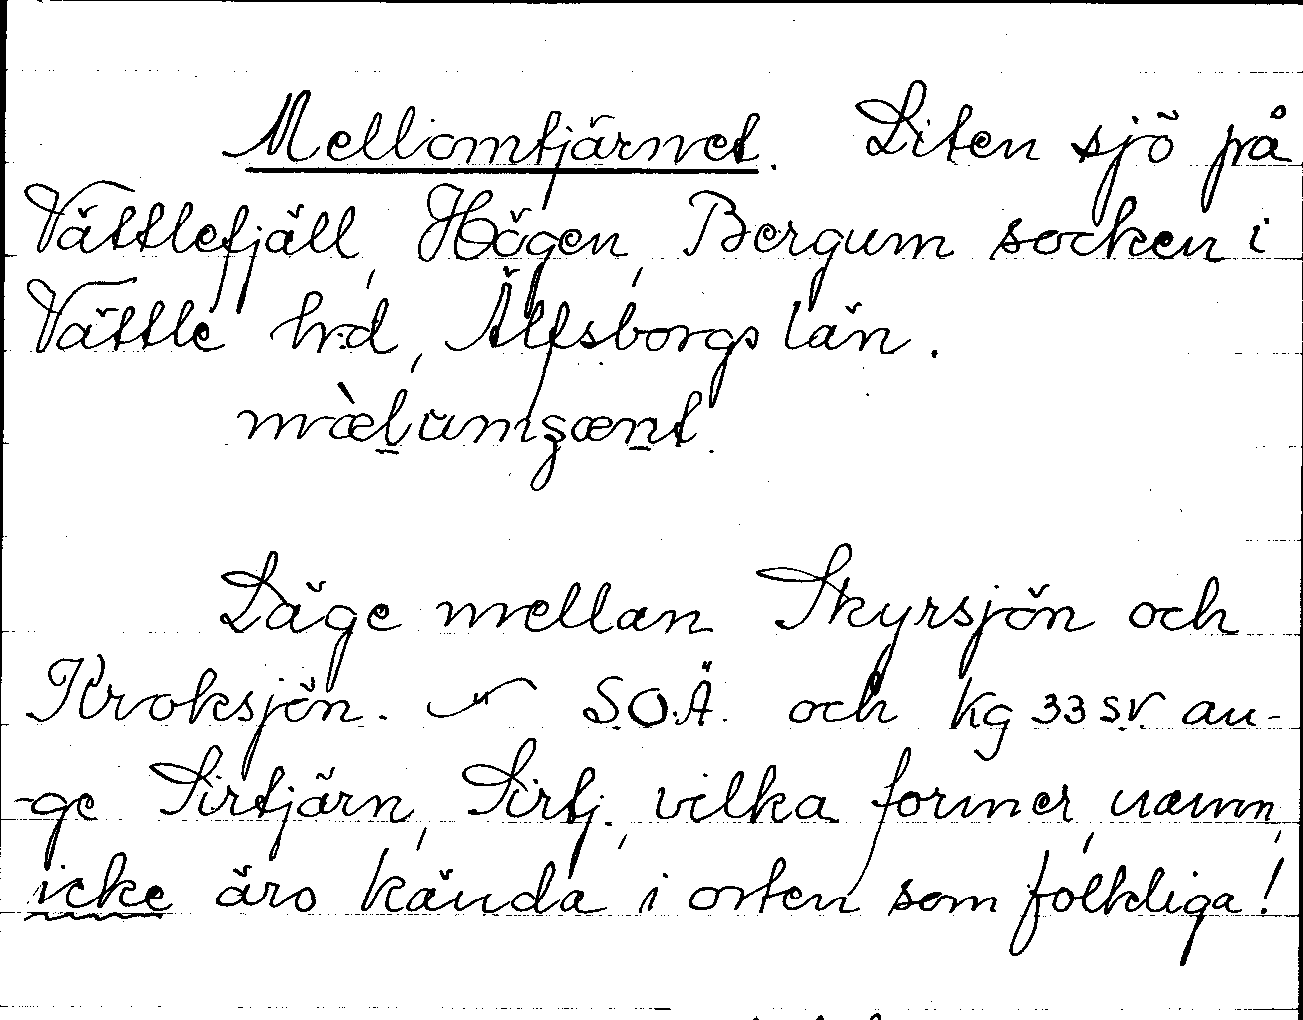 Mellomtjärnet. Liten sjö på
Vättlefjäll, Högen, Bergum socken i
Vättle hrd, Älfsborgs län.
Läge mellan Skyrsjön och
Kroksjön. S.O.Ä. och Kg 33 SV. an-
-ge Sirtjärn, Sirtj., vilka former, namn,
icke äro kända i orten som folkliga!